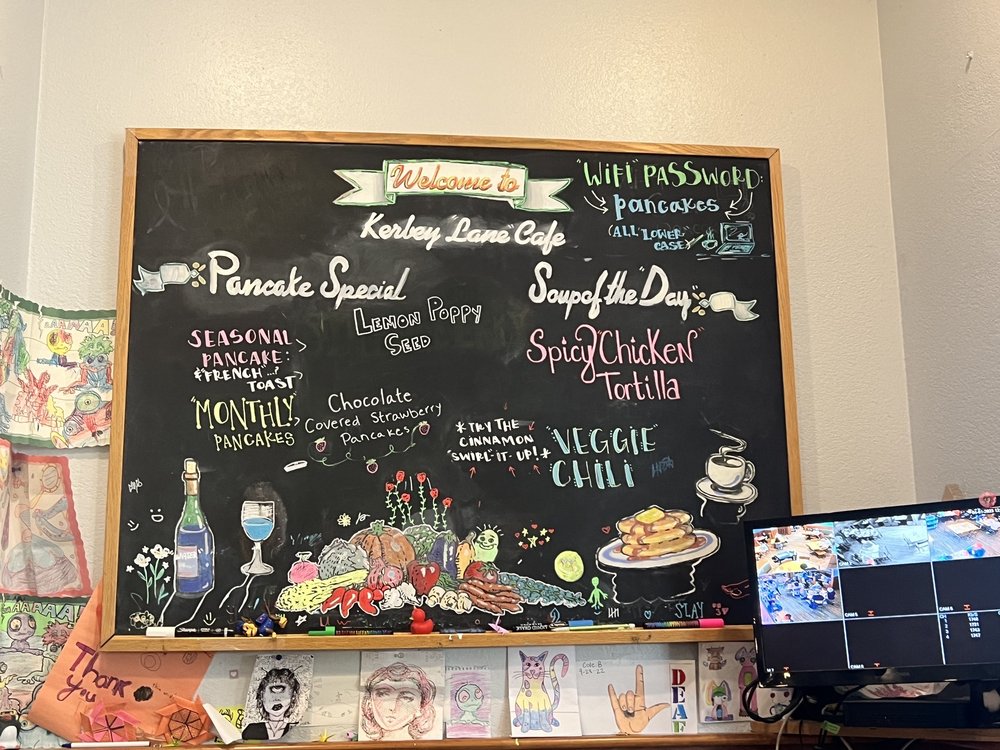 Welcome to
Kerbey "Lane" Cafe
"WiFi" PASSWORD:
pancakes
(ALL "LOWER"
CASE)
Pancake Special
LEMON POPPY
SEED
SEASONAL
PANCAKE:
& "FRENCH"...?
TOAST
"MONTHLY"
PANCAKES
Chocolate
Covered Strawberry
Pancakes
Soup of the "Day"
Spicy "Chicken"
Tortilla
*TRY THE
CINNAMON
"SWIRL" IT-UP!*
"VEGGIE"
CHILI
SLAY
Thank
you
Cole B
DEAF